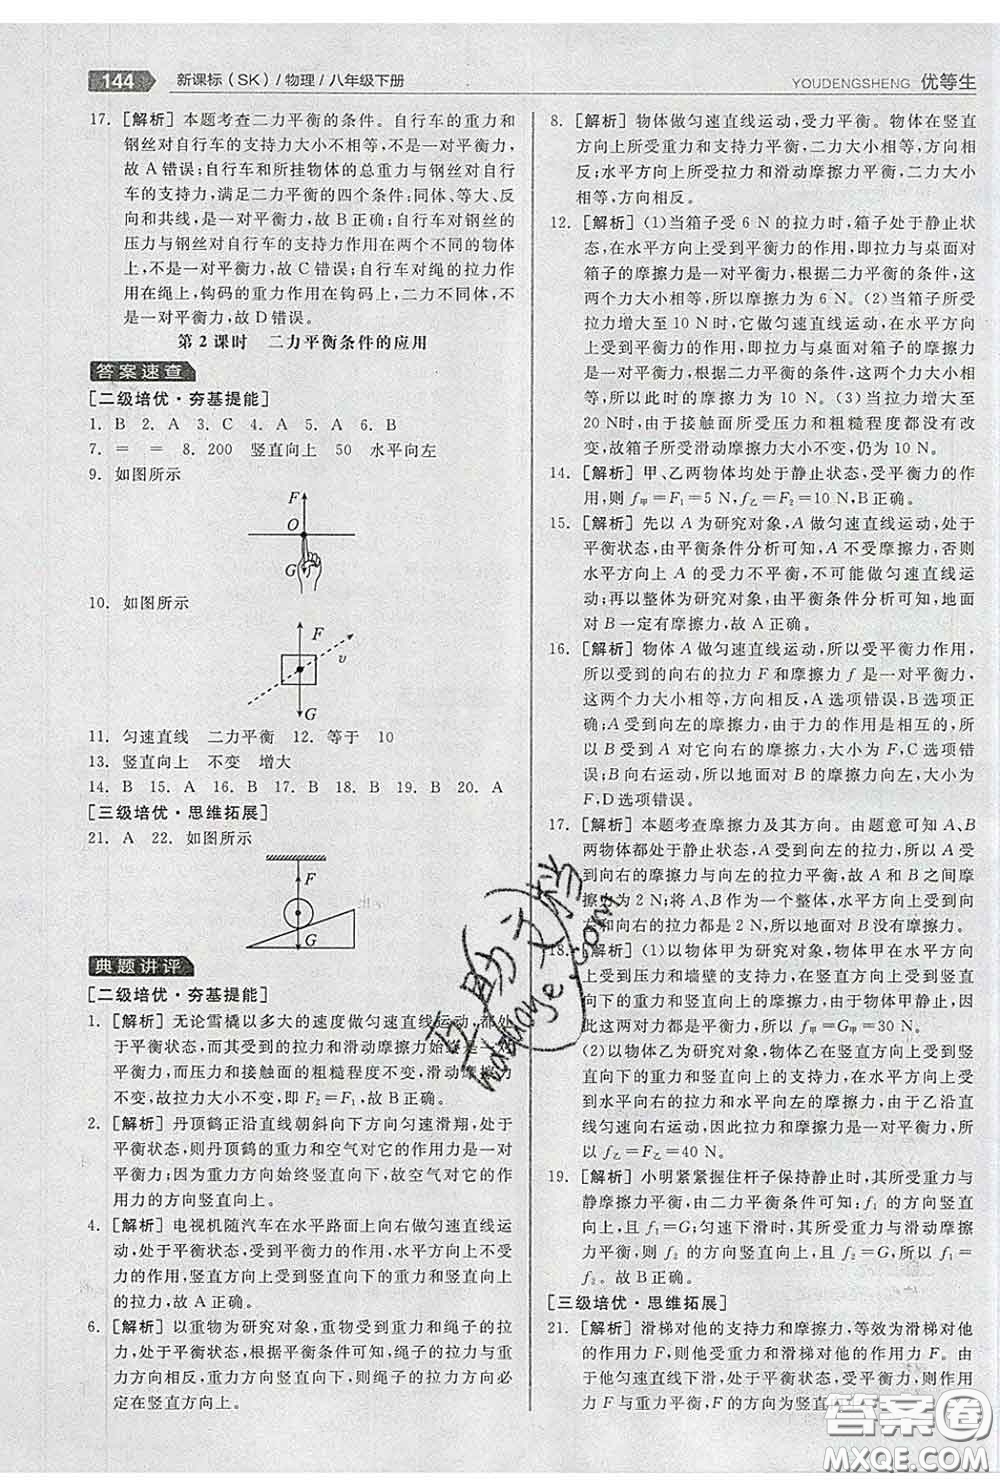 144 新课标(SK)/物理/八年级下册
YOUDENGSHENG 优等生
17. [解析] 本题考查二力平衡的条件。自行车的重力和
钢丝对自行车的支持力大小不相等,不是一对平衡力,
故 A 错误;自行车和所挂物体的总重力与钢丝对自行
车的支持力,满足二力平衡的四个条件:同体、等大、反
向和共线,是一对平衡力,故 B 正确;自行车对钢丝的
压力与钢丝对自行车的支持力作用在两个不同的物体
上,不是一对平衡力,故 C 错误;自行车对绳的拉力作
用在绳上,钩码的重力作用在钩码上,二力不同体,不
是一对平衡力,故 D 错误。
第 2 课时 二力平衡条件的应用
答案速查
[二级培优·夯基提能]
1. B 2. A 3. C 4. A 5. A 6. B
7. = = 8. 200 竖直向上 50 水平向左
9. 如图所示
F
O
G
10. 如图所示
F
v
G
11. 匀速直线 二力平衡 12. 等于 10
13. 竖直向上 不变 增大
14. B 15. A 16. B 17. B 18. A 19. B 20. A
[三级培优·思维拓展]
21. A 22. 如图所示
F
G
典题讲评
[二级培优·夯基提能]
1. [解析] 无论雪橇以多大的速度做匀速直线运动,都处
于平衡状态,而其受到的拉力和滑动摩擦力始终是一对
平衡力,因为压力和接触面的粗糙程度不变,滑动摩擦力
不变,故拉力大小不变,即 F₂=F₁,故 B 正确。
2. [解析] 丹顶鹤正沿直线朝斜向下方向匀速滑翔,处于
平衡状态,则丹顶鹤的重力和空气对它的作用力是一对
平衡力;因为重力方向始终竖直向下,故空气对它的作
用力的方向竖直向上。
4. [解析] 电视机随汽车在水平路面上向右做匀速直线运
动,处于平衡状态,受到平衡力的作用,水平方向上不受
力的作用,竖直方向上受到竖直向下的重力和竖直向上
的拉力,故 A 正确。
6. [解析] 以重物为研究对象,重物受到重力和绳子的拉
力,处于平衡状态,根据平衡条件可知,绳子的拉力与重
力方向相反,重力方向竖直向下,则绳子的拉力方向必
定在竖直方向上。
8. [解析] 物体做匀速直线运动,受力平衡。物体在竖直
方向上所受重力和支持力平衡,二力大小相等,方向相
反;水平方向上所受拉力和滑动摩擦力平衡,二力大小
相等,方向相反。
12. [解析] (1)当箱子受 6 N 的拉力时,箱子处于静止状
态,在水平方向上受到平衡力的作用,即拉力与桌面对
箱子的摩擦力是一对平衡力,根据二力平衡的条件,这
两个力大小相等,所以摩擦力为 6 N。(2)当箱子所受
拉力增大至 10 N 时,它做匀速直线运动,此时受到平
衡力的作用,即拉力与桌面对箱子的摩擦力是一对平
衡力,根据二力平衡的条件可知,这两个力大小相等,
所以此时的摩擦力为 10 N。(3)当拉力增大至
20 N时,由于接触面所受压力和粗糙程度都没有改
变,故箱子所受滑动摩擦力大小不变,仍为 10 N。
14. [解析] 甲、乙两物体均处于静止状态,受平衡力的作
用,则 f甲=F₁=5 N,f乙=F₂=10 N,B正确。
15. [解析] 先以 A 为研究对象,A 做匀速直线运动,处于
平衡状态,由平衡条件分析可知,A 不受摩擦力,否则
水平方向上 A 的受力不平衡,不可能做匀速直线运
动;再以整体为研究对象,由平衡条件分析可知,地面
对 B 一定有摩擦力,故 A 正确。
16. [解析] 物体 A 做匀速直线运动,所以受平衡力作用,
所以受到的向右的拉力 F 和摩擦力 f 是一对平衡力,
这两个力大小相等,方向相反,A 选项错误,B 选项正
确;A 受到向左的摩擦力,由于力的作用是相互的,所
以 B 受到 A 对它向右的摩擦力,大小为 F,C 选项错
误;B 向右运动,所以受到地面的摩擦力向左,大小为
F,D 选项错误。
17. [解析] 本题考查摩擦力及其方向。由题意可知 A、B
两物体都处于静止状态,A受到向左的拉力,B 受到向
右的拉力,拉力大小相等,故 A 和 B 之间一定存在摩
擦力的作用;把 A、B 看作一个整体,水平方向上向左
和向右的拉力都是 2 N,所以地面对 B 没有摩擦力。
18. [解析] (1)以物体甲为研究对象,物体甲在水平方向
上受到压力和墙壁的支持力,在竖直方向上受到竖直
向下的重力和竖直向上的摩擦力,由于物体甲静止,因
此这两对力都是平衡力,故 f甲=G甲=30 N。
(2)以物体乙为研究对象,物体乙在竖直方向上受到竖
直向下的重力和竖直向上的支持力,在水平方向上受
到水平向左的拉力和水平向右的摩擦力,由于乙沿直
线匀速向左运动,因此拉力和摩擦力是一对平衡力,
故 f乙=F乙=40 N。
19. [解析] 小明紧紧握住杆子保持静止时,其所受重力与
静摩擦力平衡,由二力平衡条件可知;f₁ 的方向竖直向
上,且 f₁=G;匀速下滑时,其所受重力与滑动摩擦力
平衡,则 f₂ 的方向竖直向上,且 f₂=G,所以 f₁=
f₂。故 B 正确。
[三级培优·思维拓展]
21. [解析] 滑梯对他的支持力和摩擦力,等效为滑梯对他
的作用力,则他受重力和滑梯对他的作用力。因为他
由于他匀速直线下滑,处于平衡状态,受平衡力,则作
用力 F 与重力大小相等,方向相反,故作用力 F 的方向
竖直向上。
互助文档
huzhuwd.com
答案圈
MXQE.COM